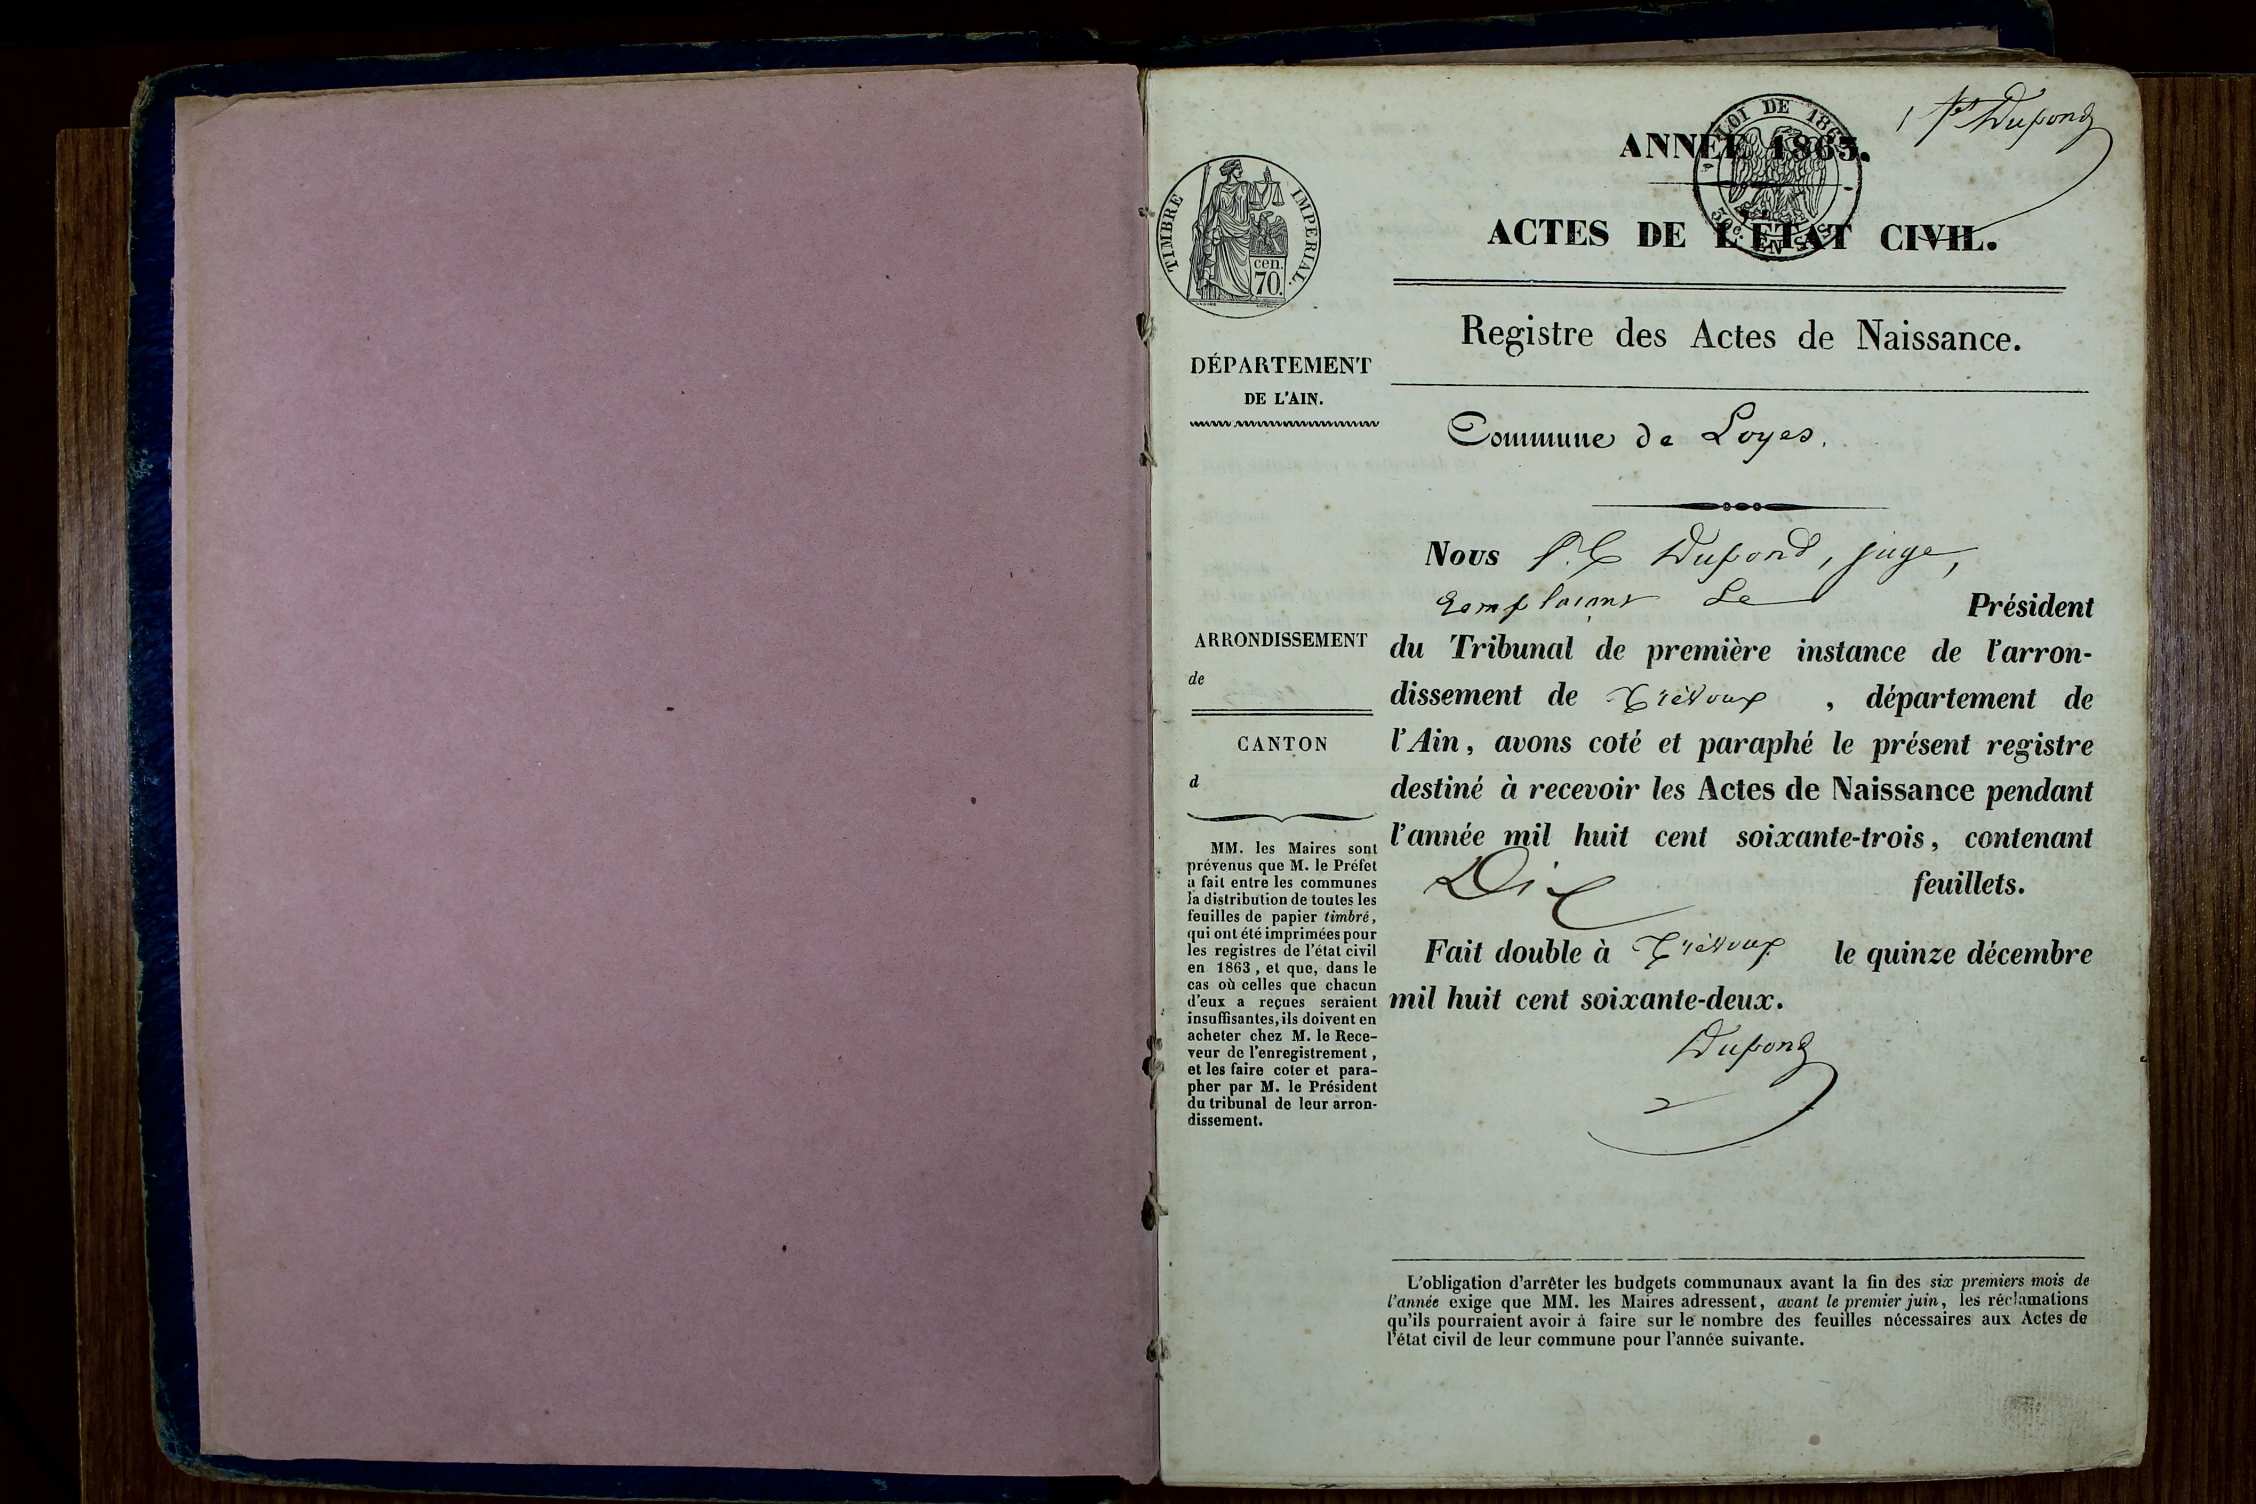 1 Dupond
LOI DE 1862
ANNÉE 1863.
50 c. EN SUS
ACTES DE L'ÉTAT CIVIL.
TIMBRE IMPÉRIAL.
cen.
70.
Registre des Actes de Naissance.
DÉPARTEMENT
DE L'AIN.
Commune de Loyes.
Nous Dupond, juge,
remplaçant Le Président
du Tribunal de première instance de l'arron-
dissement de Trévoux, département de
l'Ain, avons coté et paraphé le présent registre
destiné à recevoir les Actes de Naissance pendant
l'année mil huit cent soixante-trois, contenant
Dix feuillets.
Fait double à Trévoux le quinze décembre
mil huit cent soixante-deux.
Dupond
ARRONDISSEMENT
de
CANTON
d
MM. les Maires sont
prévenus que M. le Préfet
a fait entre les communes
la distribution de toutes les
feuilles de papier timbré,
qui ont été imprimées pour
les registres de l'état civil
en 1863, et que, dans le
cas où celles que chacun
d'eux a reçues seraient
insuffisantes, ils doivent en
acheter chez M. le Rece-
veur de l'enregistrement,
et les faire coter et para-
pher par M. le Président
du tribunal de leur arron-
dissement.
L'obligation d'arrêter les budgets communaux avant la fin des six premiers mois de
l'année exige que MM. les Maires adressent, avant le premier juin, les réclamations
qu'ils pourraient avoir à faire sur le nombre des feuilles nécessaires aux Actes de
l'état civil de leur commune pour l'année suivante.